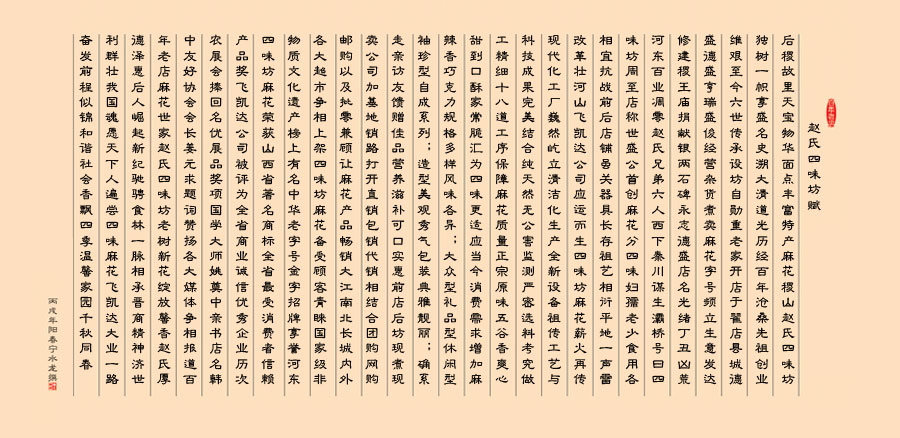 赵氏四味坊赋
后稷故里天宝物华面点丰富特产麻花稷山赵氏四味坊
独树一帜享盛名史溯大清道光历经百年沧桑先祖创业
维艰至今六世传承设坊自勋重老家开店于翟店县城德
盛德盛亨瑞盛俊经营杂货煮卖麻花字号频立生意发达
修建稷王庙捐献银两石碑永志德盛店名光绪丁丑凶荒
河东百业凋零赵氏兄弟六人西下秦川谋生灞桥号曰四
味坊周至店称世盛公首创麻花分四味妇孺老少食用各
相宜抗战前后店铺虽关器具长存祖艺相沿平地一声雷
改革壮河山飞凯达公司应运而生四味坊麻花薪火再传
现代化工厂巍然屹立清洁化生产全新设备祖传工艺与
科技成果完美结合纯天然无公害监测严密选料考究做
工精细十八道工序保障麻花质量正宗原味五谷香爽心
甜到口酥家常脆汇为四味更适应当今消费需求增加麻
辣香巧克力规格多样风味各异；大众型礼品型休闲型
袖珍型自成系列；造型美观秀气包装典雅靓丽；确系
走亲访友馈赠佳品营养滋补可口实惠前店后坊现煮现
卖公司加基地销路打开直销包销代销相结合团购网购
邮购以及批零兼顾让麻花产品畅销大江南北长城内外
各大超市争相上架四味坊麻花备受顾客青睐国家级非
物质文化遗产榜上有名中华老字号金字招牌享誉河东
四味坊麻花荣获山西省著名商标全省最受消费者信赖
产品奖飞凯达公司被评为全省商业诚信优秀企业历次
农展会捧回名优展品奖项国学大师姚奠中亲书店名韩
中友好协会会长姜无求题词赞扬各大媒体争相报道百
年老店麻花世家赵氏四味坊老树新花绽放馨香赵氏厚
德泽惠后人崛起新纪驰骋食林一脉相承晋商精神济世
利群壮我国魂愿天下人遍尝四味麻花飞凯达大业一路
奋发前程似锦和谐社会香飘四季温馨家园千秋同春
丙戌年阳春宁水龙撰